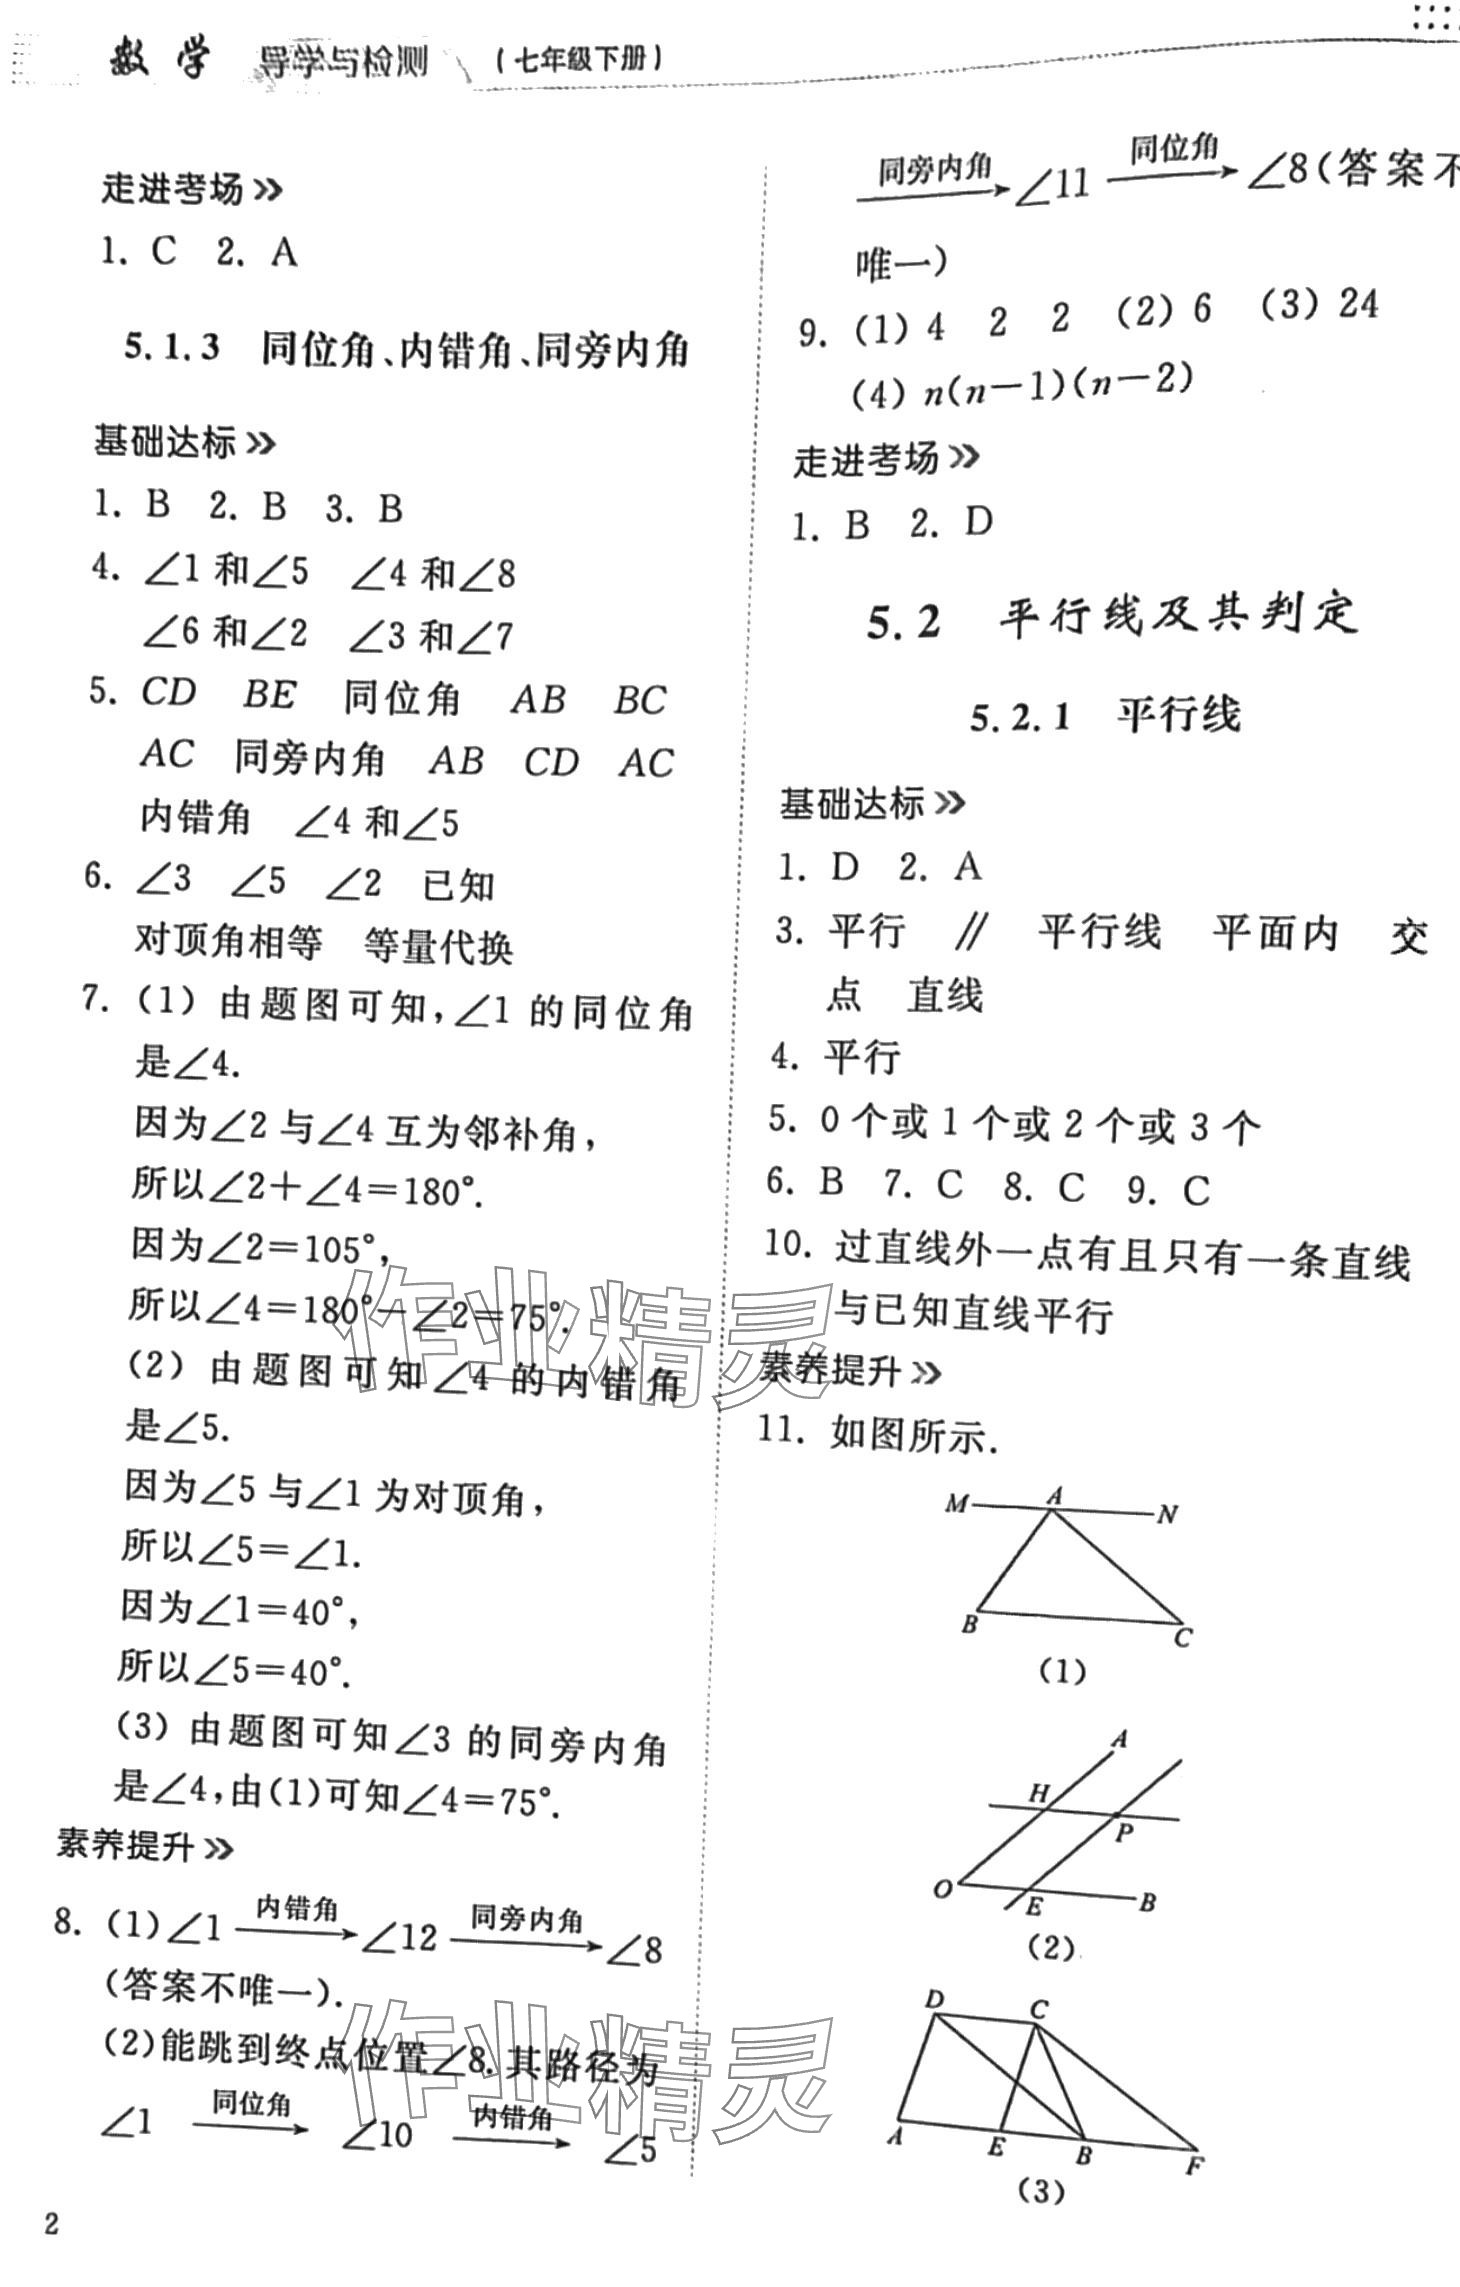 数学 导学与检测 (七年级下册)
走进考场»
1. C 2. A
5.1.3 同位角、内错角、同旁内角
基础达标»
1. B 2. B 3. B
4. ∠1 和∠5 ∠4 和∠8
∠6 和∠2 ∠3 和∠7
5. CD BE 同位角 AB BC
AC 同旁内角 AB CD AC
内错角 ∠4 和∠5
6. ∠3 ∠5 ∠2 已知
对顶角相等 等量代换
7. (1) 由题图可知,∠1 的同位角
是∠4.
因为∠2 与∠4 互为邻补角,
所以∠2+∠4=180°.
因为∠2=105°,
所以∠4=180°-∠2=75°.
(2) 由题图可知∠4 的内错角
是∠5.
因为∠5 与∠1 为对顶角,
所以∠5=∠1.
因为∠1=40°,
所以∠5=40°.
(3) 由题图可知∠3 的同旁内角
是∠4,由(1)可知∠4=75°.
素养提升»
8. (1)∠1 内错角→ ∠12 同旁内角→ ∠8
(答案不唯一).
(2)能跳到终点位置∠8. 其路径为
∠1 同位角→ ∠10 内错角→ ∠5
2
同旁内角→ ∠11 同位角→ ∠8(答案不
唯一)
9. (1) 4 2 2 (2) 6 (3) 24
(4) n(n-1)(n-2)
走进考场»
1. B 2. D
5.2 平行线及其判定
5.2.1 平行线
基础达标»
1. D 2. A
3. 平行 ∥ 平行线 平面内 交
点 直线
4. 平行
5. 0 个或 1 个或 2 个或 3 个
6. B 7. C 8. C 9. C
10. 过直线外一点有且只有一条直线
与已知直线平行
素养提升»
11. 如图所示.
M A N
B C
(1)
A
H
P
O E B
(2)
D C
A E B F
(3)
作业精灵
作业精灵